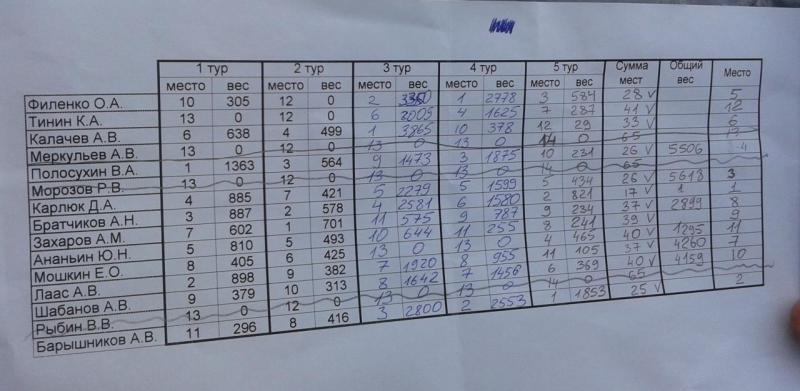 1 тур 2 тур 3 тур 4 тур 5 тур Сумма мест Общий вес Место
место вес место вес место вес место вес место вес
Филенко О.А. 10 305 12 0 2 1 2778 3 584 28 v 5
Тинин К.А. 13 0 12 0 6 2005 4 1625 7 287 41 v 12
Калачев А.В. 6 638 4 499 1 3865 10 378 12 29 33 v 6
Меркульев А.В. 13 0 12 0 13 0 13 0 14 0 65 13
Полосухин В.А. 1 1363 3 564 9 1473 3 1875 10 231 26 v 5506 4
Морозов Р.В. 13 0 12 0 13 0 13 0 14 0 65
Карлюк Д.А. 4 885 7 421 5 2279 5 1599 5 434 26 v 5618 3
Братчиков А.Н. 3 887 2 578 4 2581 6 1580 2 821 17 v 1
Захаров А.М. 7 602 1 701 11 575 9 787 9 234 37 v 2899 8
Ананьин Ю.Н. 5 810 5 493 10 644 11 255 8 241 39 v 9
Мошкин Е.О. 8 405 6 425 13 0 13 0 4 465 40 v 1295 11
Лаас А.В. 2 898 9 382 7 1920 8 955 11 105 37 v 4260 7
Шабанов А.В. 9 379 10 313 8 1642 7 1456 6 369 40 v 4159 10
Рыбин В.В. 13 0 12 0 13 0 13 0 14 0 65
Барышников А.В. 11 296 8 416 3 2800 2 2553 1 1853 25 v 2